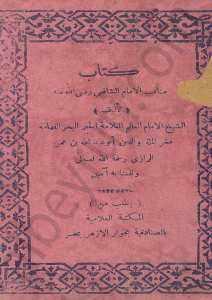 كتاب
مناقب الامام الشافعي رضي الله عنه
تأليف
الشيخ الامام العالم العلامة الحبر البحر الفهامة
فخر الملة والدين أبو عبد الله بن عمر
الرازي رحمة الله تعالى
آمين
يطلب من
المكتبة العلامية
بالصنادقية بجوار الازهر بمصر